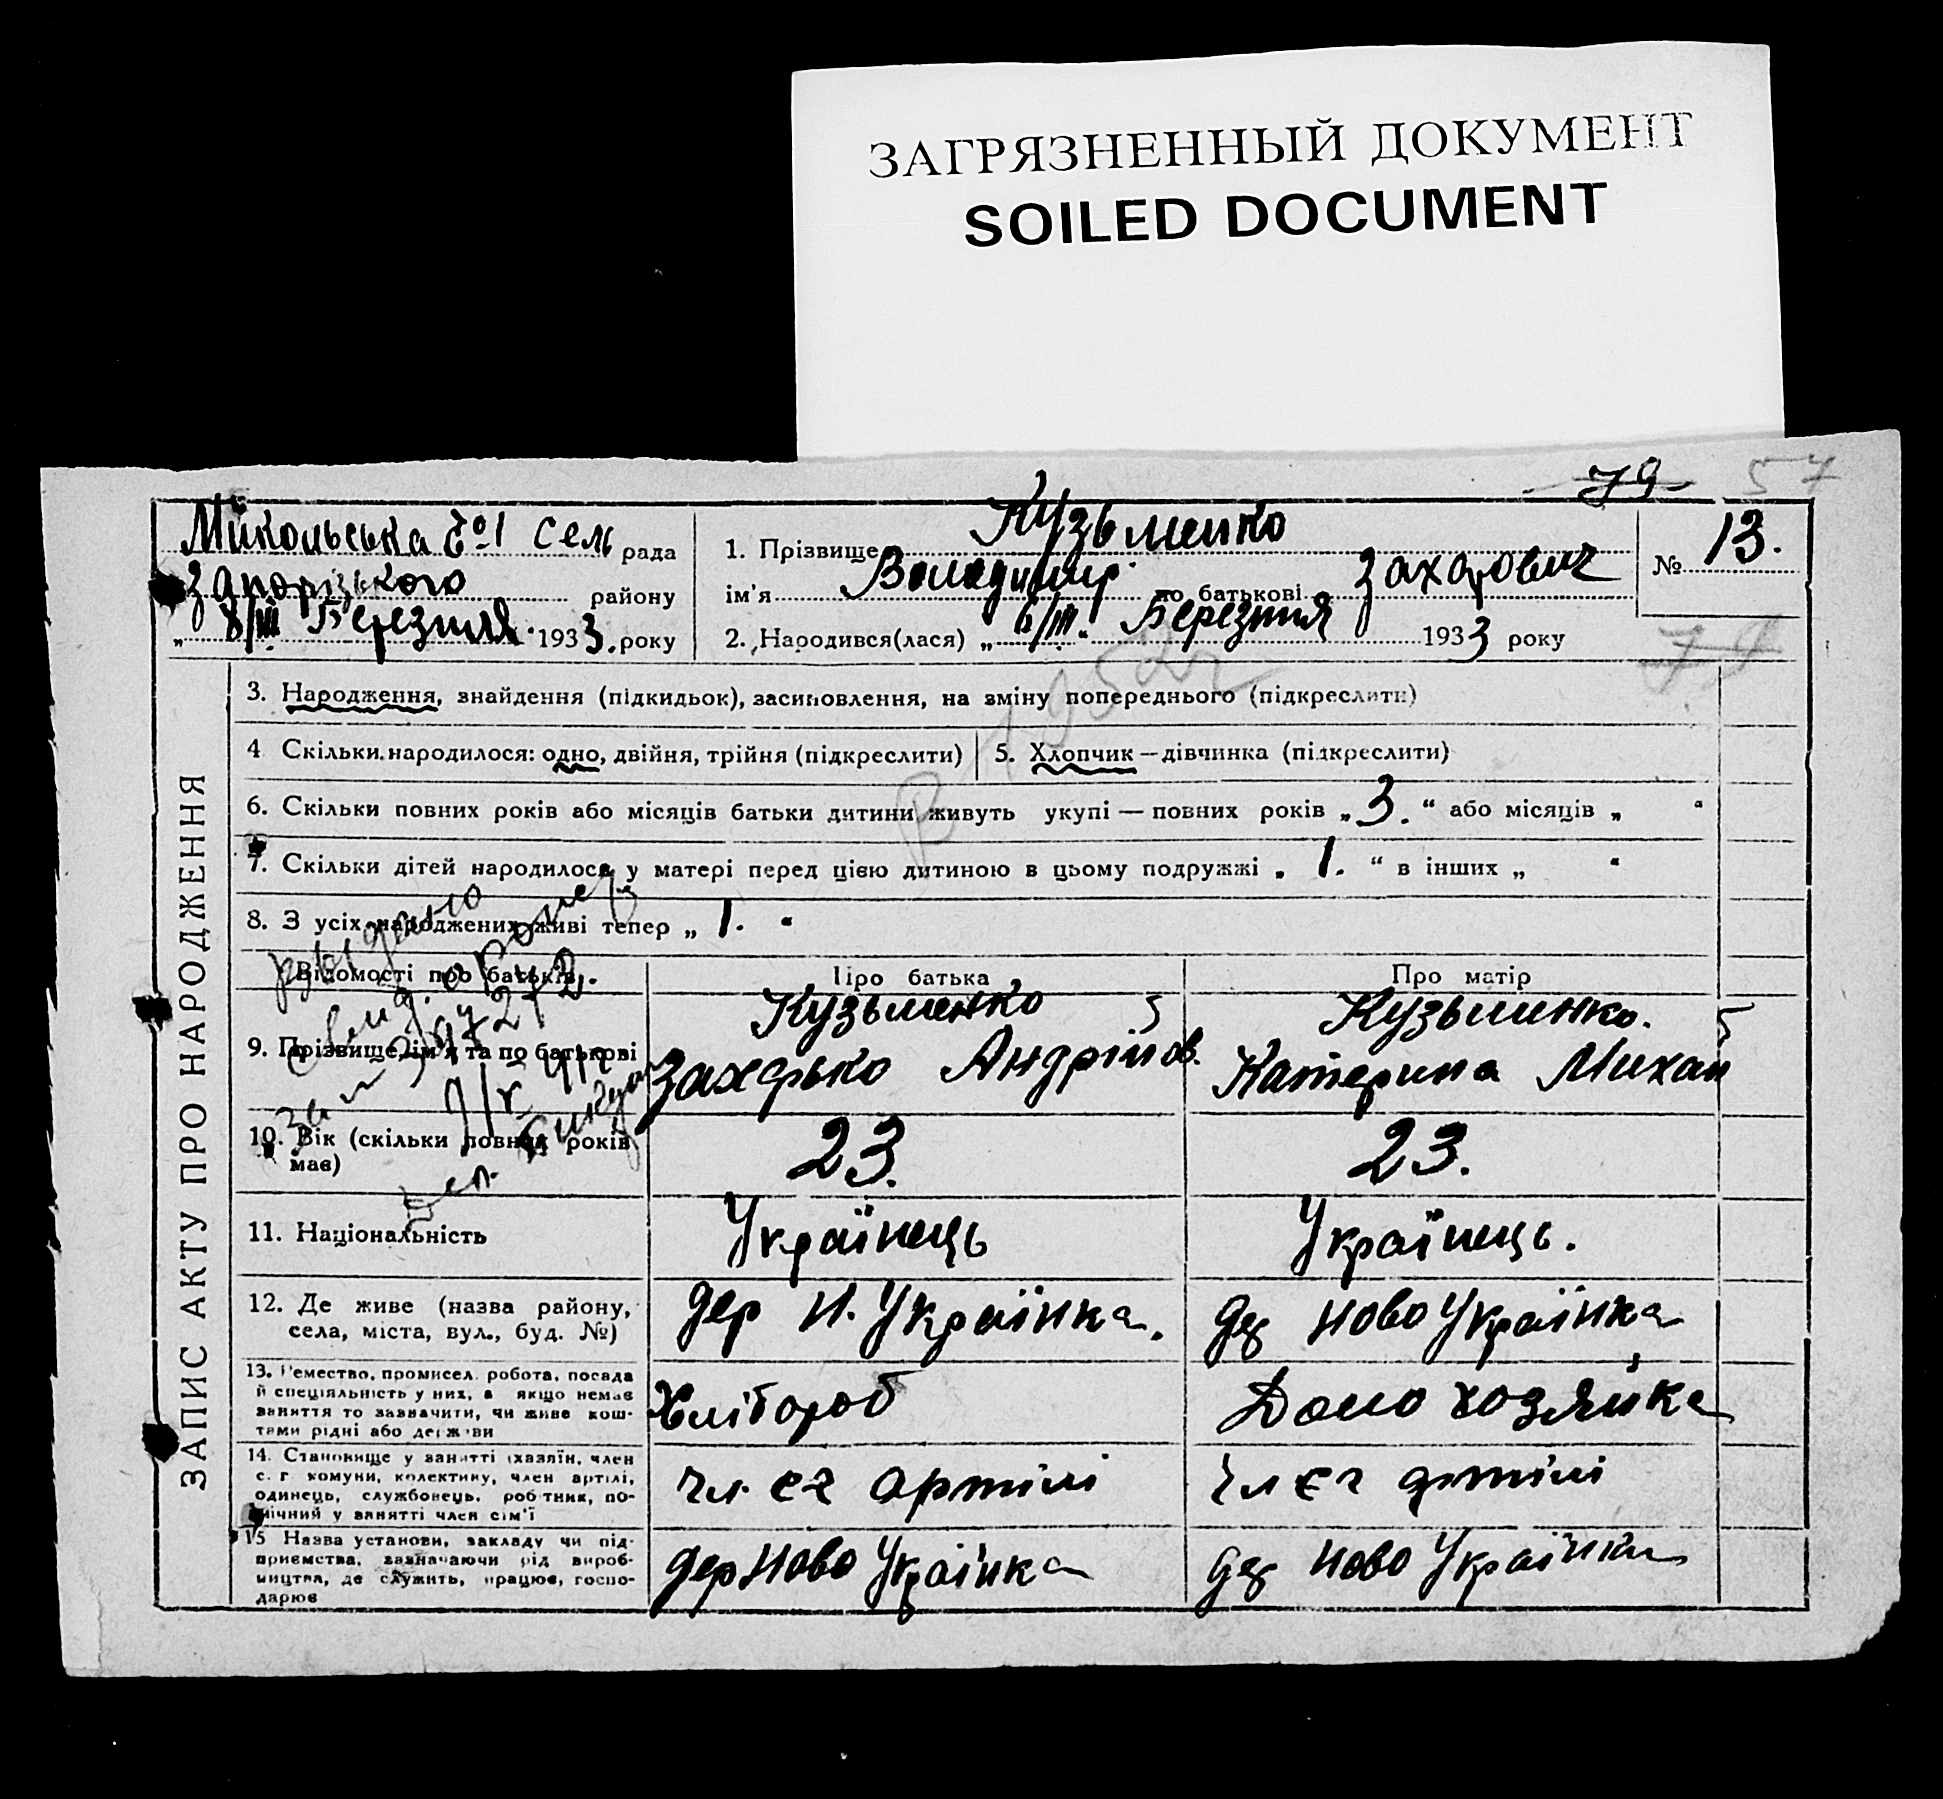 ЗАГРЯЗНЕННЫЙ ДОКУМЕНТ
SOILED DOCUMENT
79 57
Микольська №1 сель рада
Запорізького району
„ 8/III Березтля 1933. року
1. Прізвище Кузьменко
ім'я Володимир по батькові Захарович
2. Народився(лася) „ 6/III. Березтля 1933 року
№ 13.
79
ЗАПИС АКТУ ПРО НАРОДЖЕННЯ
3. Народження, знайдення (підкидьок), засиновлення, на зміну попереднього (підкреслити)
4 Скільки народилося: одно, двійня, трійня (підкреслити)
5. Хлопчик — дівчинка (підкреслити)
6. Скільки повних років або місяців батьки дитини живуть укупі — повних років „ 3. “ або місяців „ “
7. Скільки дітей народилося у матері перед цією дитиною в цьому подружжі „ 1. “ в інших „ “
8. З усіх народжених живі тепер „ 1. “
Відомості про батьків
Про батька
Про матір
9. Прізвище, ім'я та по батькові
Кузьменко
Захарько Андріїв.
Кузьминко.
Катерина Михай
10. Вік (скільки повних років має)
23.
23.
11. Національність
Українець
Українець.
12. Де живе (назва району,
села, міста, вул., буд. №)
дер Н. Українка.
дер Ново Українка
13. Ремество, промисел, робота, посада
й спеціяльність у них, а якщо немає
заняття то зазначити, чи живе кош-
тами рідні або держави
Хлібороб
Домо хозяйка
14. Становище у занятті (хазяїн, член
с. г комуни, колективу, член артілі,
одинець, службовець, робітник, по-
мічний у занятті член сім'ї
чл. сг артілі
чл сг артілі
15 Назва установи, закладу чи під-
приємства, зазначаючи рід вироб-
ництва, де служить, працює, госпо-
дарює
дер Ново Українка
дер Ново Українка